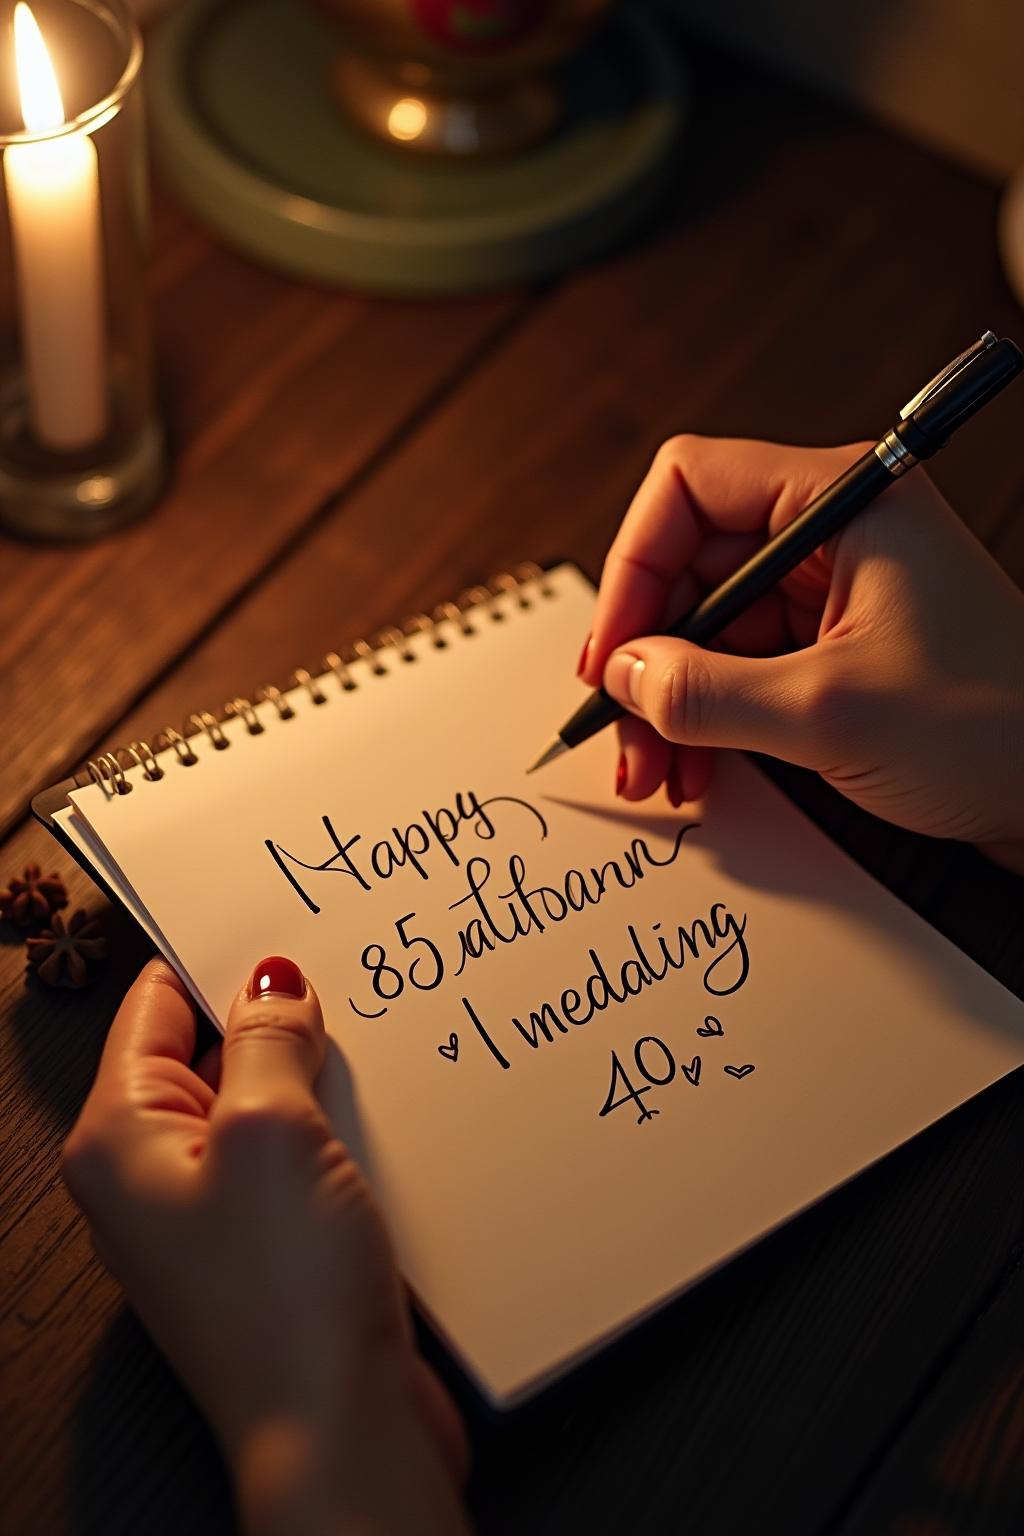 Happy
85 alitoann
I medaling
40